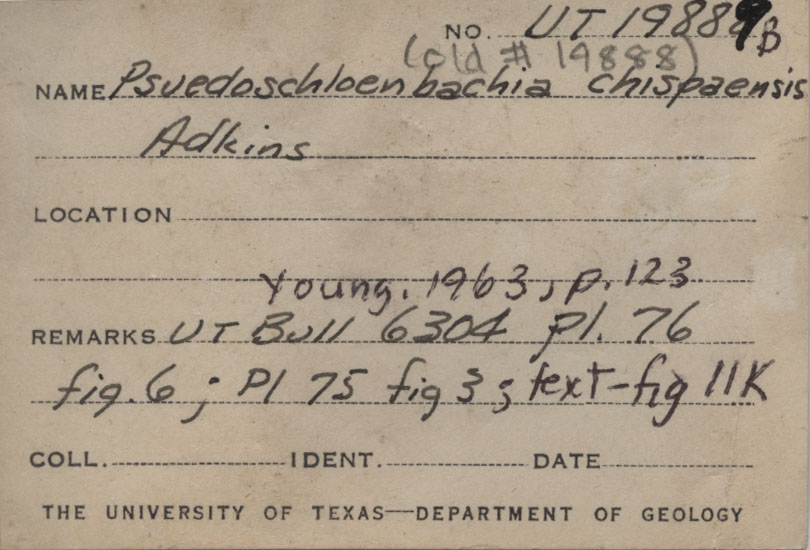 NO. UT 19889B
(old # 19888)
NAME Psuedoschloenbachia chispaensis
Adkins
LOCATION
Young, 1963, p. 123
REMARKS UT Bull 6304 pl. 76
fig. 6 ; Pl 75 fig 3 ; text-fig 11K
COLL. IDENT. DATE
THE UNIVERSITY OF TEXAS—DEPARTMENT OF GEOLOGY